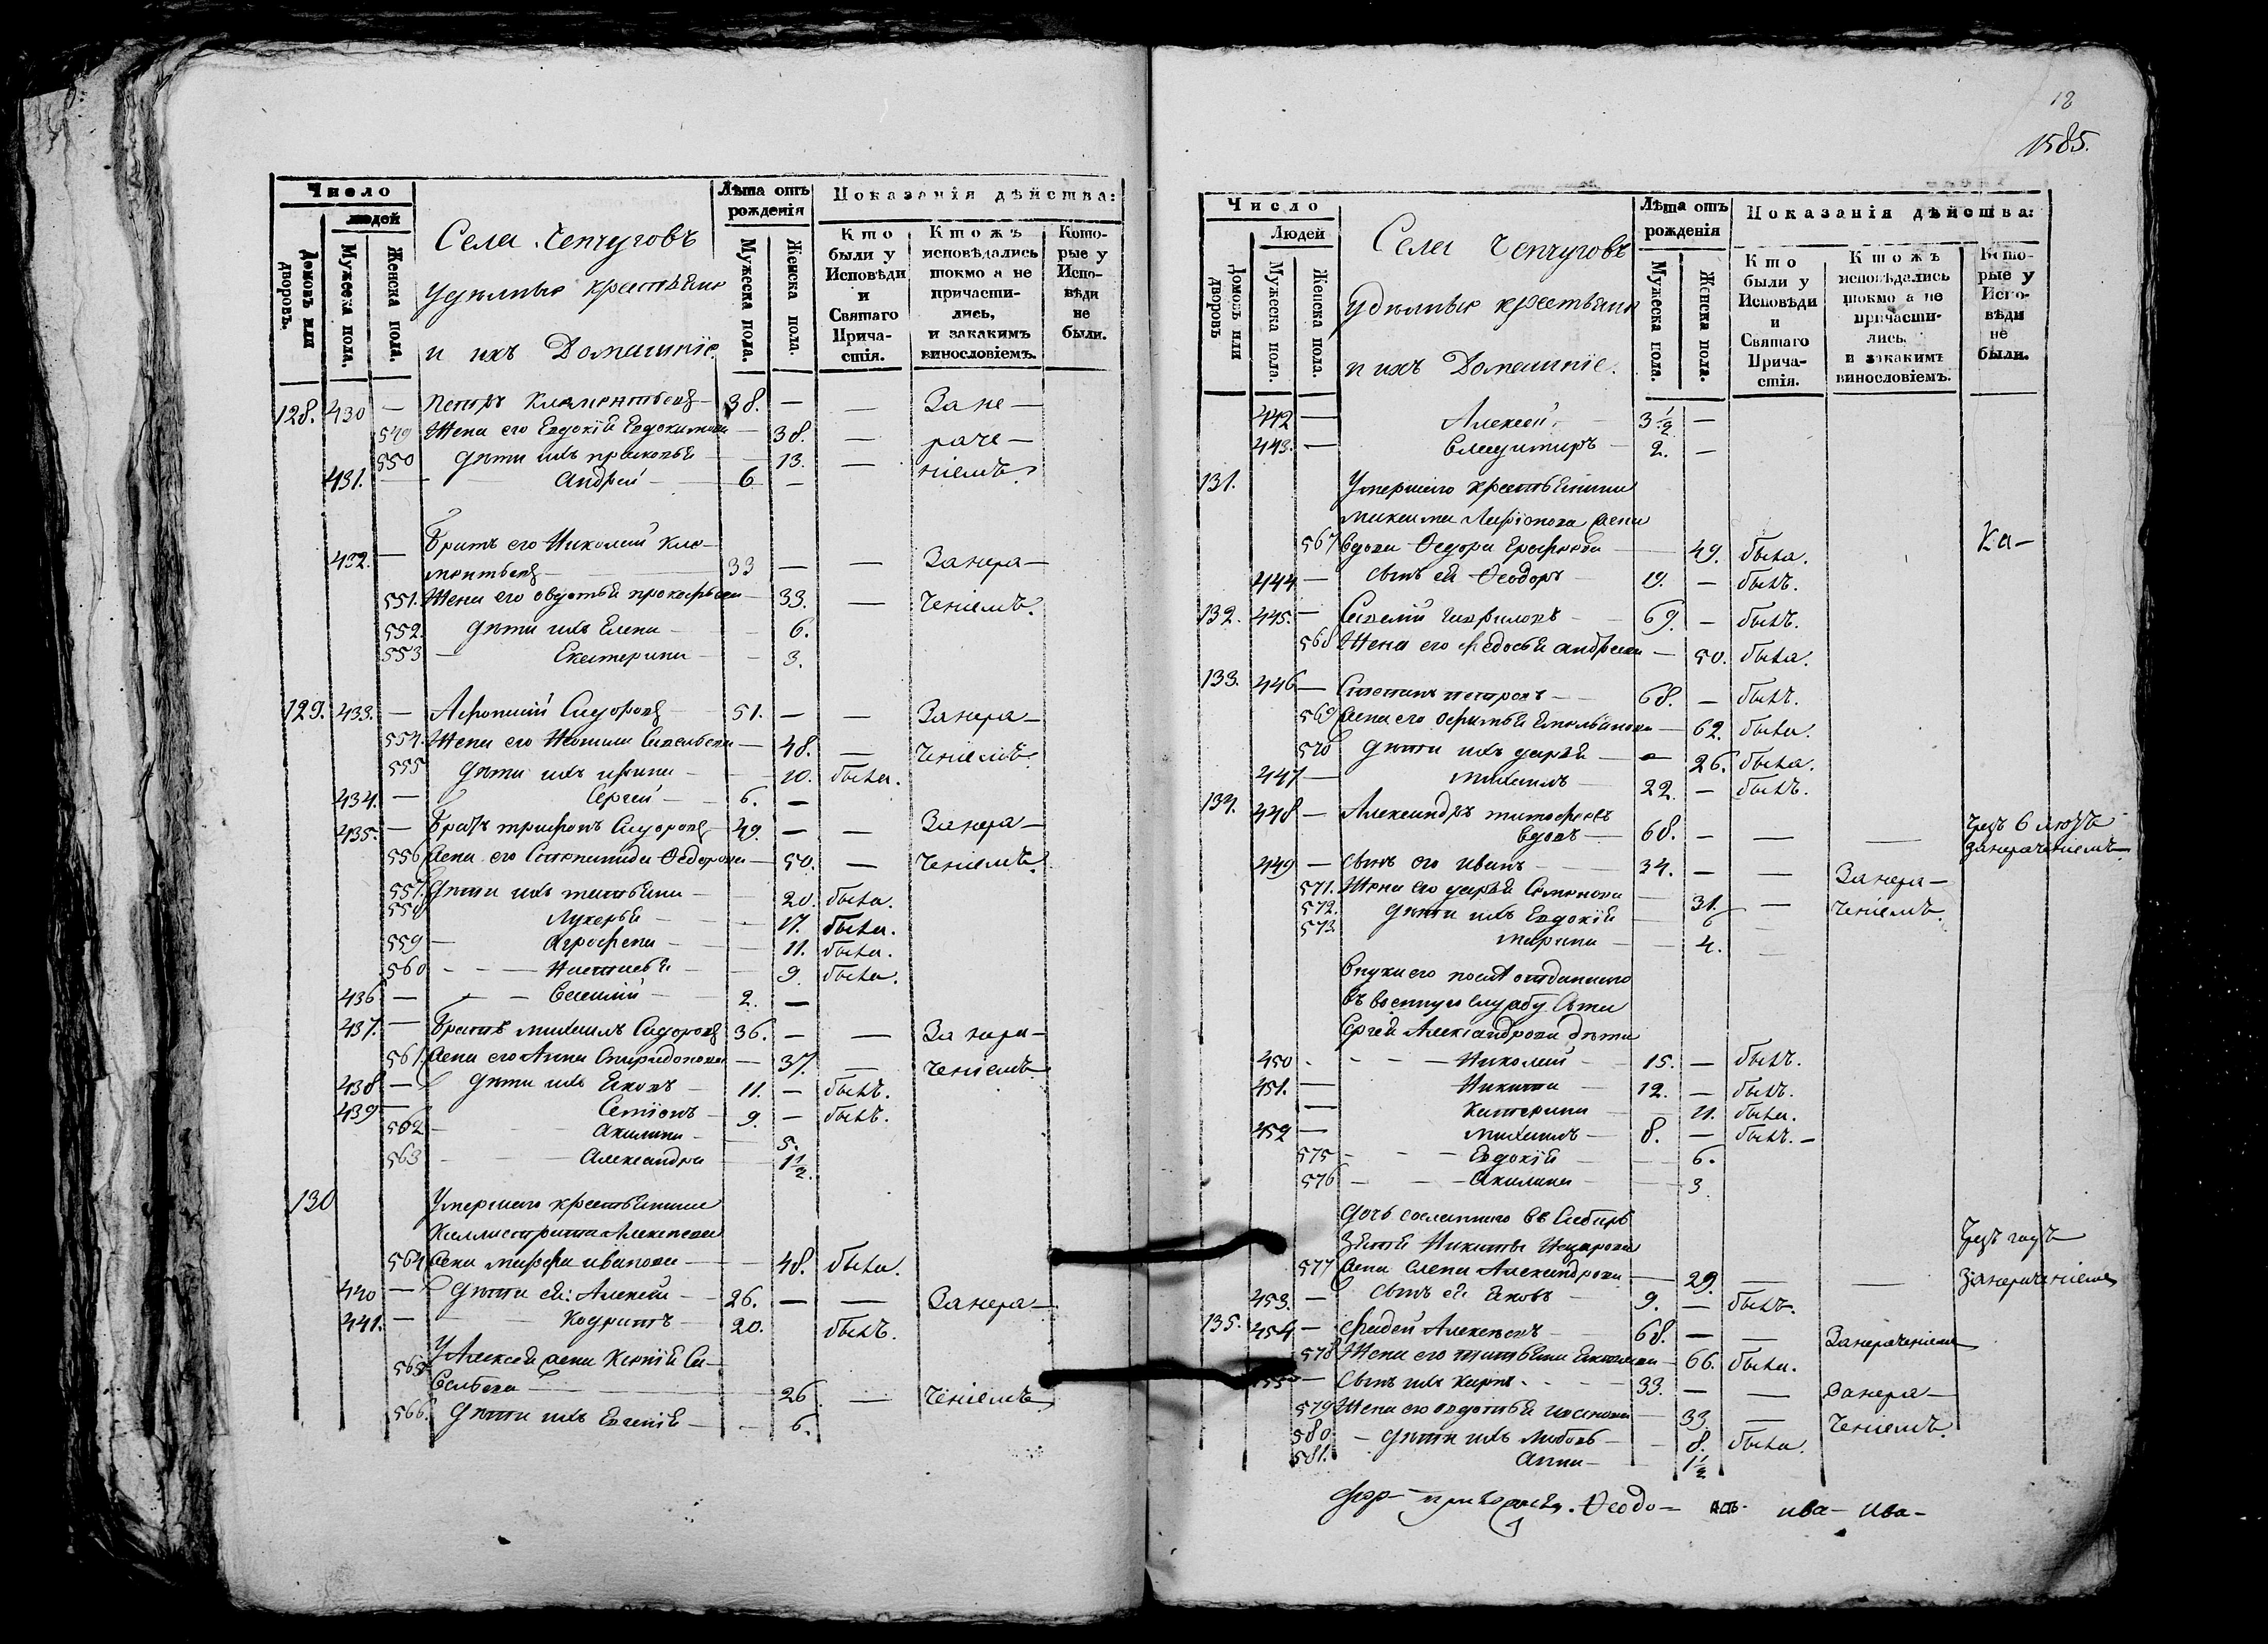 Число
людей
Домовъ или дворовъ.
Мужеска пола.
Женска пола.
Села Чепчуговъ
Удѣльные крестьяне
и ихъ Домашніе
Лѣта отъ рожденія
Мужеска пола.
Женска пола.
Показанія дѣйства:
Кто были у Исповѣди и Святаго Прича-стія.
Ктожъ исповѣдались токмо а не причасти-лись, и закакимъ винословіемъ.
Кото-рые у Испо-вѣди не были.
128. 430 — Петръ Клементьевъ — 38. — — Зане —
549 Жена его Евдокія Евдокимова — 38. — раче —
550 Дѣти ихъ Прасковья — 13. — ніемъ.
431. — Андрей — 6 —
Братъ его Николай Кле-
432. — ментьевъ — 33 — — Занера —
551. Жена его Авдотья Прокофьева — 33. — ченіемъ.
552. Дѣти ихъ Елена — 6.
553 — Екатерина — 3.
129. 433. — Афонасій Сидоровъ 51. — — Занера —
554. Жена его Савельева — 48. — ченіемъ.
555 Дѣти ихъ Ирина — 20. была.
434. — Сергей — 6. —
435. — Братъ Трифонъ Сидоровъ 49. — — Занера —
556 жена его Степанида Ѳедорова — 50. — ченіемъ.
557. Дѣти ихъ Татьяна — 20. была.
558 Лукерья — 17. была.
559 — Агрофена — 11. была.
560 — Настасья — 9. была.
436 — Василій — 2. —
437. — Братъ Михаилъ Сидоровъ 36. — — Занера —
561. жена его Анна Спиридонова — 37. — ченіемъ
438 — Дѣти ихъ Яковъ — 11. — былъ.
439 — Семіонъ — 9. — былъ.
562 — Акилина — 5.
563 — Александра 1½.
130 Умершаго крестьянина
Каллистрата Алексеева
564 жена Марфа Иванова — 48. была.
440 — Дѣти ея: Алексей — 26. — — Занера —
441. — Кодратъ 20. былъ.
565 У Алексея жена Ксенія Са-
вельева — 26. — ченіемъ
566. Дѣти ихъ Евгенія — 6.
18
1585.
Число
Людей
Домовъ или дворовъ
Мужеска пола.
Женска пола.
Села Чепчуговъ
Удѣльные крестьяне
и ихъ Домашніе.
Лѣта отъ рожденія
Мужеска пола.
Женска пола.
Показанія дѣйства:
Кто были у Исповѣди и Святаго Прича-стія.
Ктожъ исповѣдались токмо а не причасти-лись, и закакимъ винословіемъ.
Кото-рые у Испо-вѣди не были.
442 — Алексей 3½ —
443. — Владимиръ — 2. —
131. Умершаго крестьянина
Максима Ларіонова жена
567 вдова Ѳедора Ерофеева — 49. была. Ка —
444 — сынъ ея Ѳеодоръ — 19. — былъ.
132. 445. — Савелій Гавриловъ — 69. — былъ.
568 Жена его Федосья Андреева — 50. была.
133. 446 — Степанъ Петровъ — 68. — былъ.
569 жена его Емельянова — 62. была.
570 Дѣти ихъ Дарья — 26. была.
447 — Михаилъ 22. — былъ.
134. 448 — Александръ Тимофеевъ
вдовъ — 68. — — — Чрезъ 6 лѣтъ занераченіемъ
449 — сынъ его Иванъ 34. — — Занера —
571. Жена его Дарья Семенова 31. — ченіемъ.
572. Дѣти ихъ Евдокія 6 —
573 Марина — 4.
Внуки его послѣ отданнаго
въ военную службу сына
Сергея Александрова дѣти
450 — Николай — 15. — былъ.
451. — Никита — 12. — былъ.
— Катерина — 11. была.
452 — Михаилъ — 8. — былъ. —
575 — Евдокія — 6.
576 — Акилина — 3
Дочь сосланнаго въ Сибирь
зятя Никиты Назарова
577 жена Елена Александрова — 29. — — Чрезъ годъ занераченіемъ
453. — сынъ ея Яковъ — 9. — былъ.
135. 454 — Фадей Алексеевъ — 68. — — Занераченіемъ
578 Жена его Татьяна — 66. была.
455 — Сынъ ихъ Карпъ — 33. — — Занера —
579 Жена его Авдотья — 33. — ченіемъ.
580 — Дѣти ихъ Любовь — 8. была.
581. Анна — 1½
Ѳеодо — ива — ива —